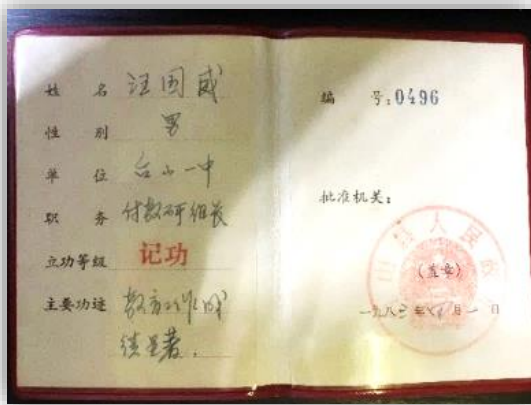 姓 名 汪国威
性 别 男
单 位 台山一中
职 务 付教研组长
立功等级 记功
主要功迹 教育工作成
绩显著.
编 号:0496
批准机关:
县人民政
(盖章)
一九八 年 月一日